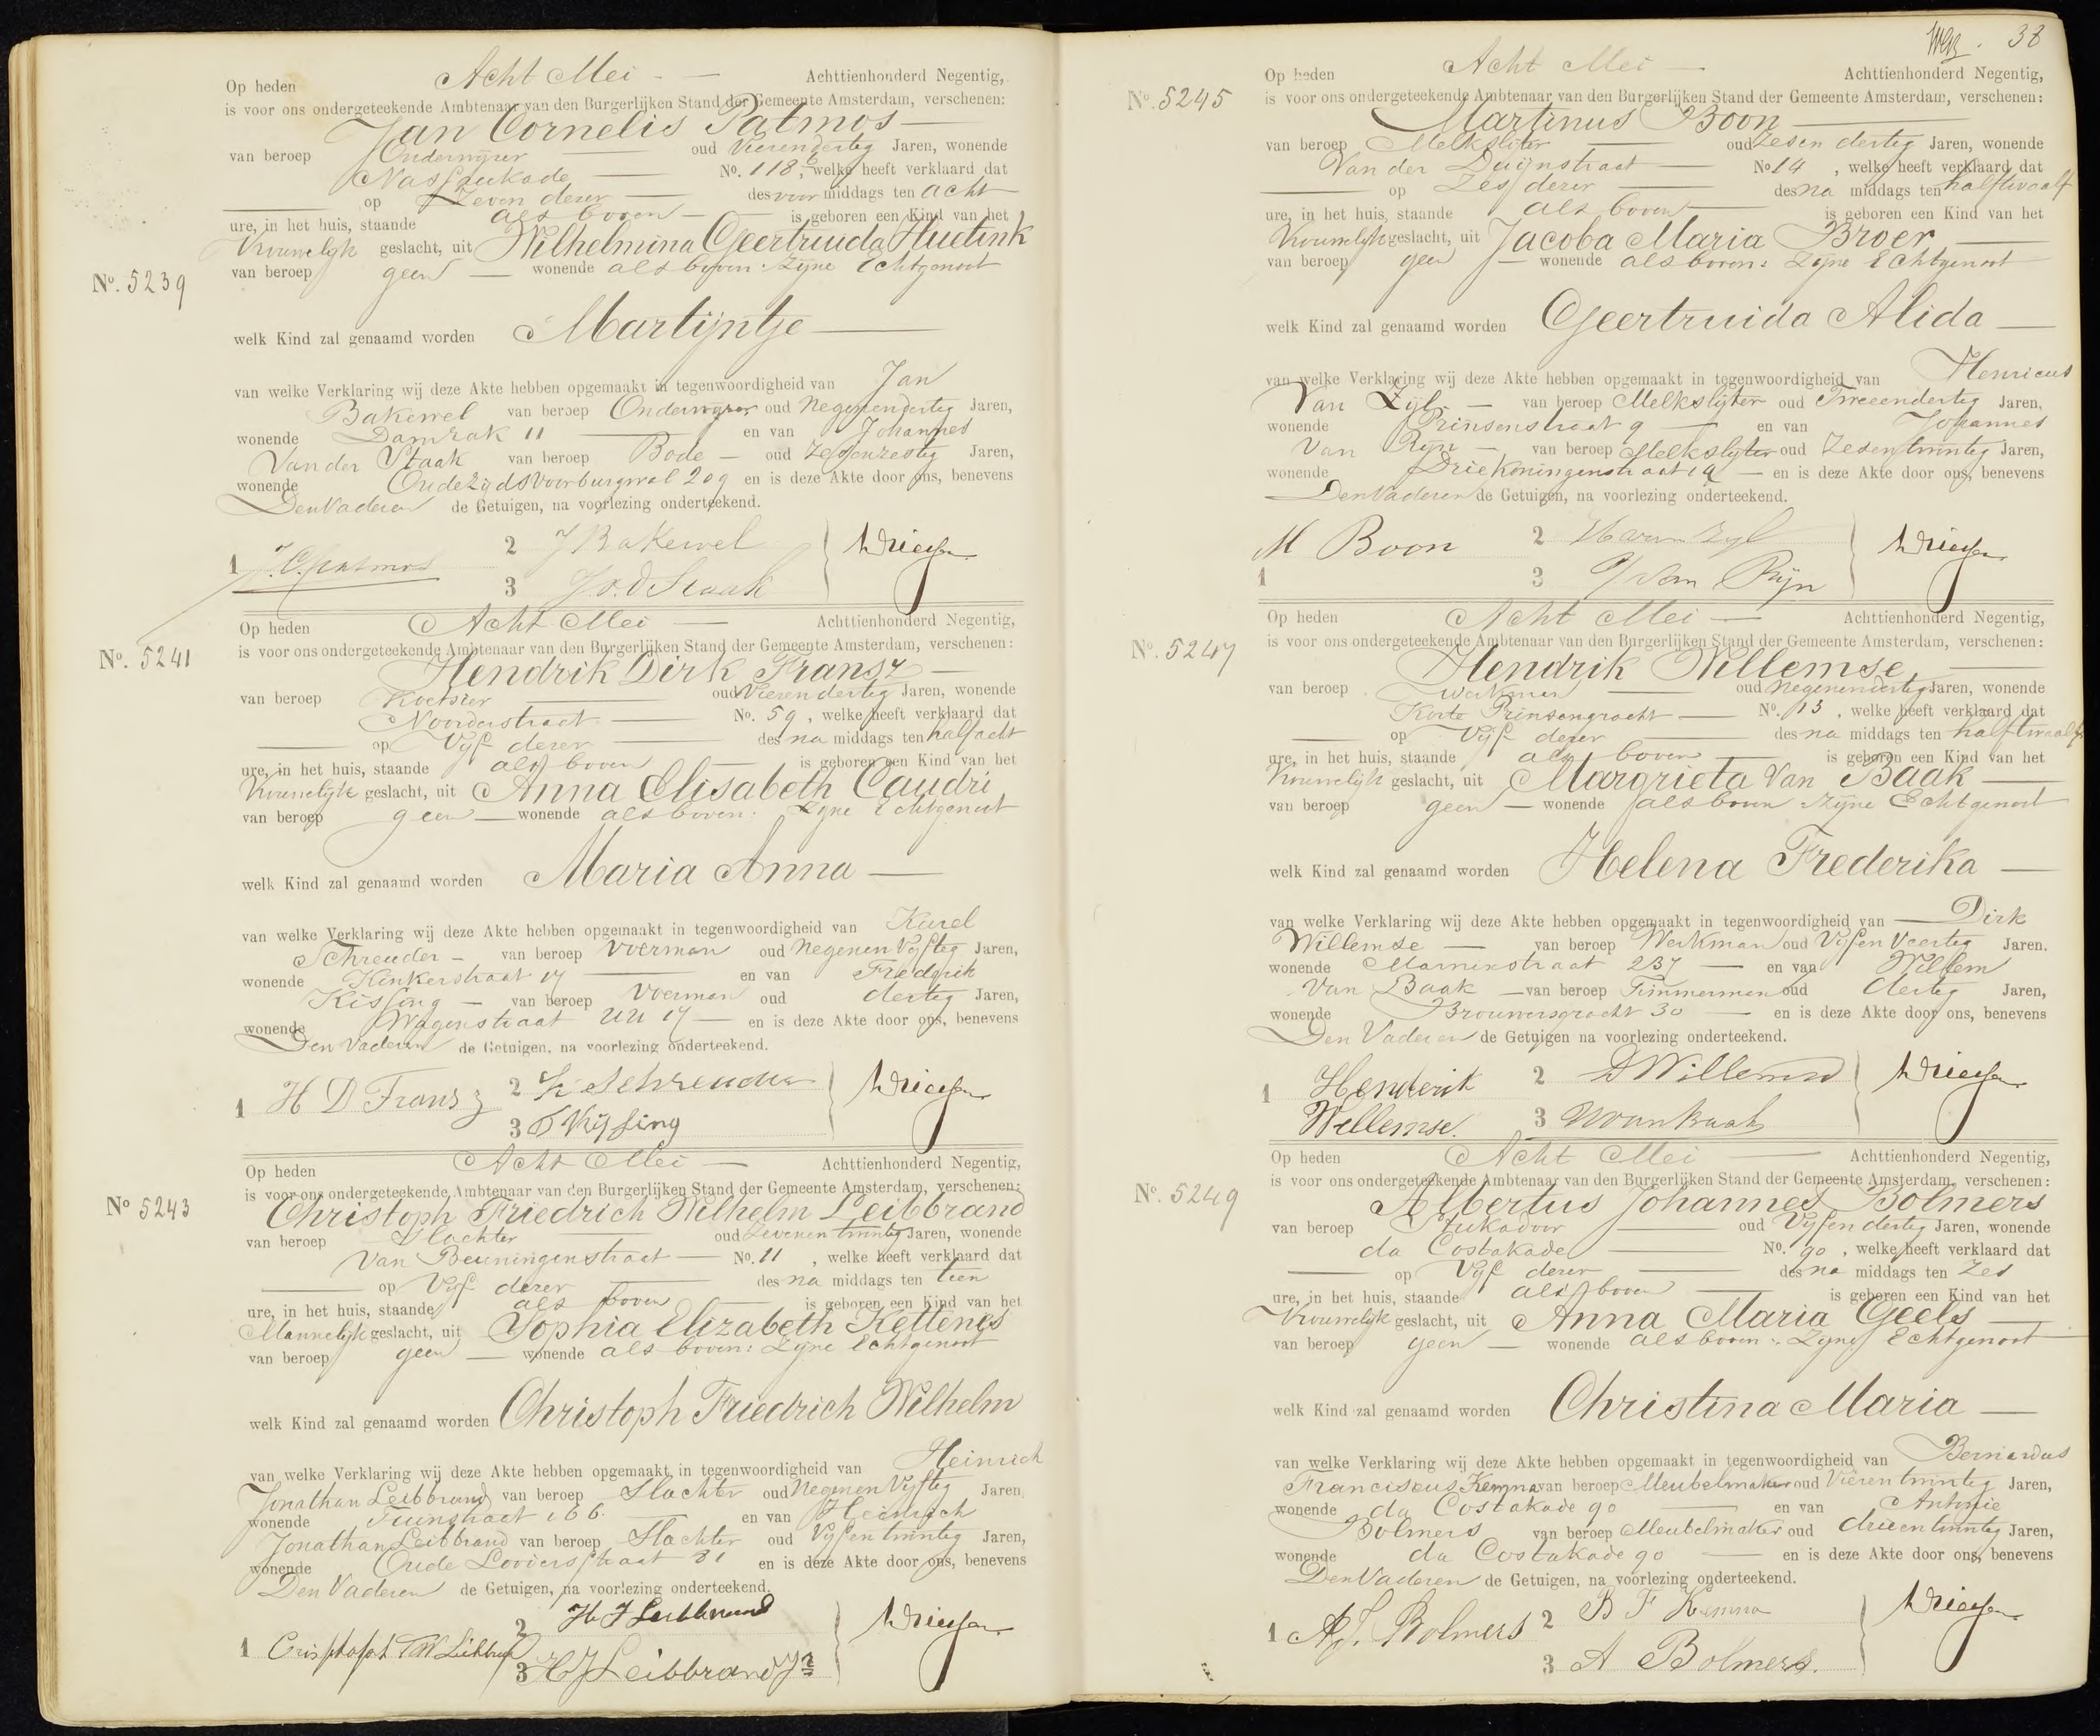 Op heden Acht Mei Achttienhonderd Negentig,
is voor ons ondergeteekende Ambtenaar van den Burgerlijken Stand der Gemeente Amsterdam, verschenen:
Jan Cornelis Patmos
van beroep Onderwijzer oud Vierendertig Jaren, wonende
Nassaukade No. 118, welke heeft verklaard dat
op Zeven dezer des voor middags ten acht
ure, in het huis, staande als boven is geboren een Kind van het
Vrouwelijk geslacht, uit Wilhelmina Geertruida Huetink
van beroep geen wonende als boven: Zijne Echtgenoot
No. 5239
welk Kind zal genaamd worden Martijntje
van welke Verklaring wij deze Akte hebben opgemaakt in tegenwoordigheid van Jan
Bakewel van beroep Onderwijzer oud Negenendertig Jaren,
wonende Damrak 11 en van Johannes
Van der Staak van beroep Bode oud Zesenzestig Jaren,
wonende OudeZijdsVoorburgwal 209 en is deze Akte door ons, benevens
Den Vader en de Getuigen, na voorlezing onderteekend.
1 J.C. Patmos 2 J Bakewel
3 J v. d Staak
Op heden Acht Mei Achttienhonderd Negentig,
No. 5241 is voor ons ondergeteekende Ambtenaar van den Burgerlijken Stand der Gemeente Amsterdam, verschenen:
Hendrik Dirk Fransz
van beroep Koetsier oud Vierendertig Jaren, wonende
Noorderstraat No. 59, welke heeft verklaard dat
op Vijf dezer des na middags ten half acht
ure, in het huis, staande als boven is geboren een Kind van het
Vrouwelijk geslacht, uit Anna Elisabeth Caudri
van beroep geen wonende als boven: Zijne Echtgenoot
welk Kind zal genaamd worden Maria Anna
van welke Verklaring wij deze Akte hebben opgemaakt in tegenwoordigheid van Karel
Schreuder van beroep Voerman oud Negenen Vijftig Jaren,
wonende Kinkerstraat 17 en van Frederik
Kissing van beroep Voerman oud dertig Jaren,
wonende Wagenstraat UU 17 en is deze Akte door ons, benevens
Den Vader en de Getuigen, na voorlezing onderteekend.
1 H D Fransz 2 K Schreuder
3 F Kissing
Op heden Acht Mei Achttienhonderd Negentig,
No 5243 is voor ons ondergeteekende Ambtenaar van den Burgerlijken Stand der Gemeente Amsterdam, verschenen:
Christoph Friedrich Wilhelm Leibbrand
van beroep Slachter oud Zevenen twintig Jaren, wonende
Van Beuningenstraat No. 11, welke heeft verklaard dat
op Vijf dezer des na middags ten tien
ure, in het huis, staande als boven is geboren een Kind van het
Mannelijk geslacht, uit Sophia Elizabeth Kettenis
van beroep geen wonende als boven: Zijne Echtgenoot
welk Kind zal genaamd worden Christoph Friedrich Wilhelm
van welke Verklaring wij deze Akte hebben opgemaakt in tegenwoordigheid van Heinrich
Jonathan Leibbrand van beroep Slachter oud Negenen Vijftig Jaren,
wonende Tuinstraat 166 en van Heinrich
Jonathan Leibbrand van beroep Slachter oud Vijfen twintig Jaren,
wonende Oude Looiersstraat 81 en is deze Akte door ons, benevens
Den Vader en de Getuigen, na voorlezing onderteekend.
2 H J Leibbrand
1 3 H J Leibbrand Jr
38
Op heden Acht Mei Achttienhonderd Negentig,
No. 5245 is voor ons ondergeteekende Ambtenaar van den Burgerlijken Stand der Gemeente Amsterdam, verschenen:
Martinus Boon
van beroep Melkslijter oud Zesen dertig Jaren, wonende
Van der Duijnstraat No 14, welke heeft verklaard dat
op Zes dezer des na middags ten half twaalf
ure, in het huis, staande als boven is geboren een Kind van het
Vrouwelijk geslacht, uit Jacoba Maria Broer
van beroep geen wonende als boven: Zijne Echtgenoot
welk Kind zal genaamd worden Geertruida Alida
van welke Verklaring wij deze Akte hebben opgemaakt in tegenwoordigheid van Henricus
Van Zijl van beroep Melkslijter oud Tweeendertig Jaren,
wonende Prinsenstraat 9 en van Johannes
Van Rijn van beroep Melkslijter oud Zesen twintig Jaren,
wonende Driekoningenstraat en is deze Akte door ons, benevens
Den Vader en de Getuigen, na voorlezing onderteekend.
M Boon 2 H van Zyl
1 3 J van Rijn
Op heden Acht Mei Achttienhonderd Negentig,
No. 5247 is voor ons ondergeteekende Ambtenaar van den Burgerlijken Stand der Gemeente Amsterdam, verschenen:
Hendrik Willemse
van beroep werkman oud Negenendertig Jaren, wonende
Korte Prinsengracht No. 13, welke heeft verklaard dat
op Vijf dezer des na middags ten half twaalf
ure, in het huis, staande als boven is geboren een Kind van het
Vrouwelijk geslacht, uit Margrieta Van Baak
van beroep geen wonende als boven: Zijne Echtgenoot
welk Kind zal genaamd worden Helena Frederika
van welke Verklaring wij deze Akte hebben opgemaakt in tegenwoordigheid van Dirk
Willemse van beroep Werkman oud Vijfen Veertig Jaren.
wonende Marnixstraat 237 en van Willem
Van Baak van beroep Timmerman oud dertig Jaren,
wonende Brouwersgracht 30 en is deze Akte door ons, benevens
Den Vader en de Getuigen na voorlezing onderteekend.
1 Henderik 2 D Willemse
Willemse. 3 W van Baak
Op heden Acht Mei Achttienhonderd Negentig,
No. 5249 is voor ons ondergeteekende Ambtenaar van den Burgerlijken Stand der Gemeente Amsterdam, verschenen:
Albertus Johannes Bolmers
van beroep Stukadoor oud Vijfen dertig Jaren, wonende
da Costakade No. 90, welke heeft verklaard dat
op Vijf dezer des na middags ten Zes
ure, in het huis, staande als boven is geboren een Kind van het
Vrouwelijk geslacht, uit Anna Maria Geels
van beroep geen wonende als boven: Zijne Echtgenoot
welk Kind zal genaamd worden Christina Maria
van welke Verklaring wij deze Akte hebben opgemaakt in tegenwoordigheid van Bernardus
Franciscus Kemna van beroep Meubelmaker oud Vieren twintig Jaren,
wonende da Costakade 90 en van Antonie
Bolmers van beroep Meubelmaker oud drieen twintig Jaren,
wonende da Costakade 90 en is deze Akte door ons, benevens
Den Vader en de Getuigen, na voorlezing onderteekend.
1 A J. Bolmers 2 B F Kemna
3 A Bolmers.